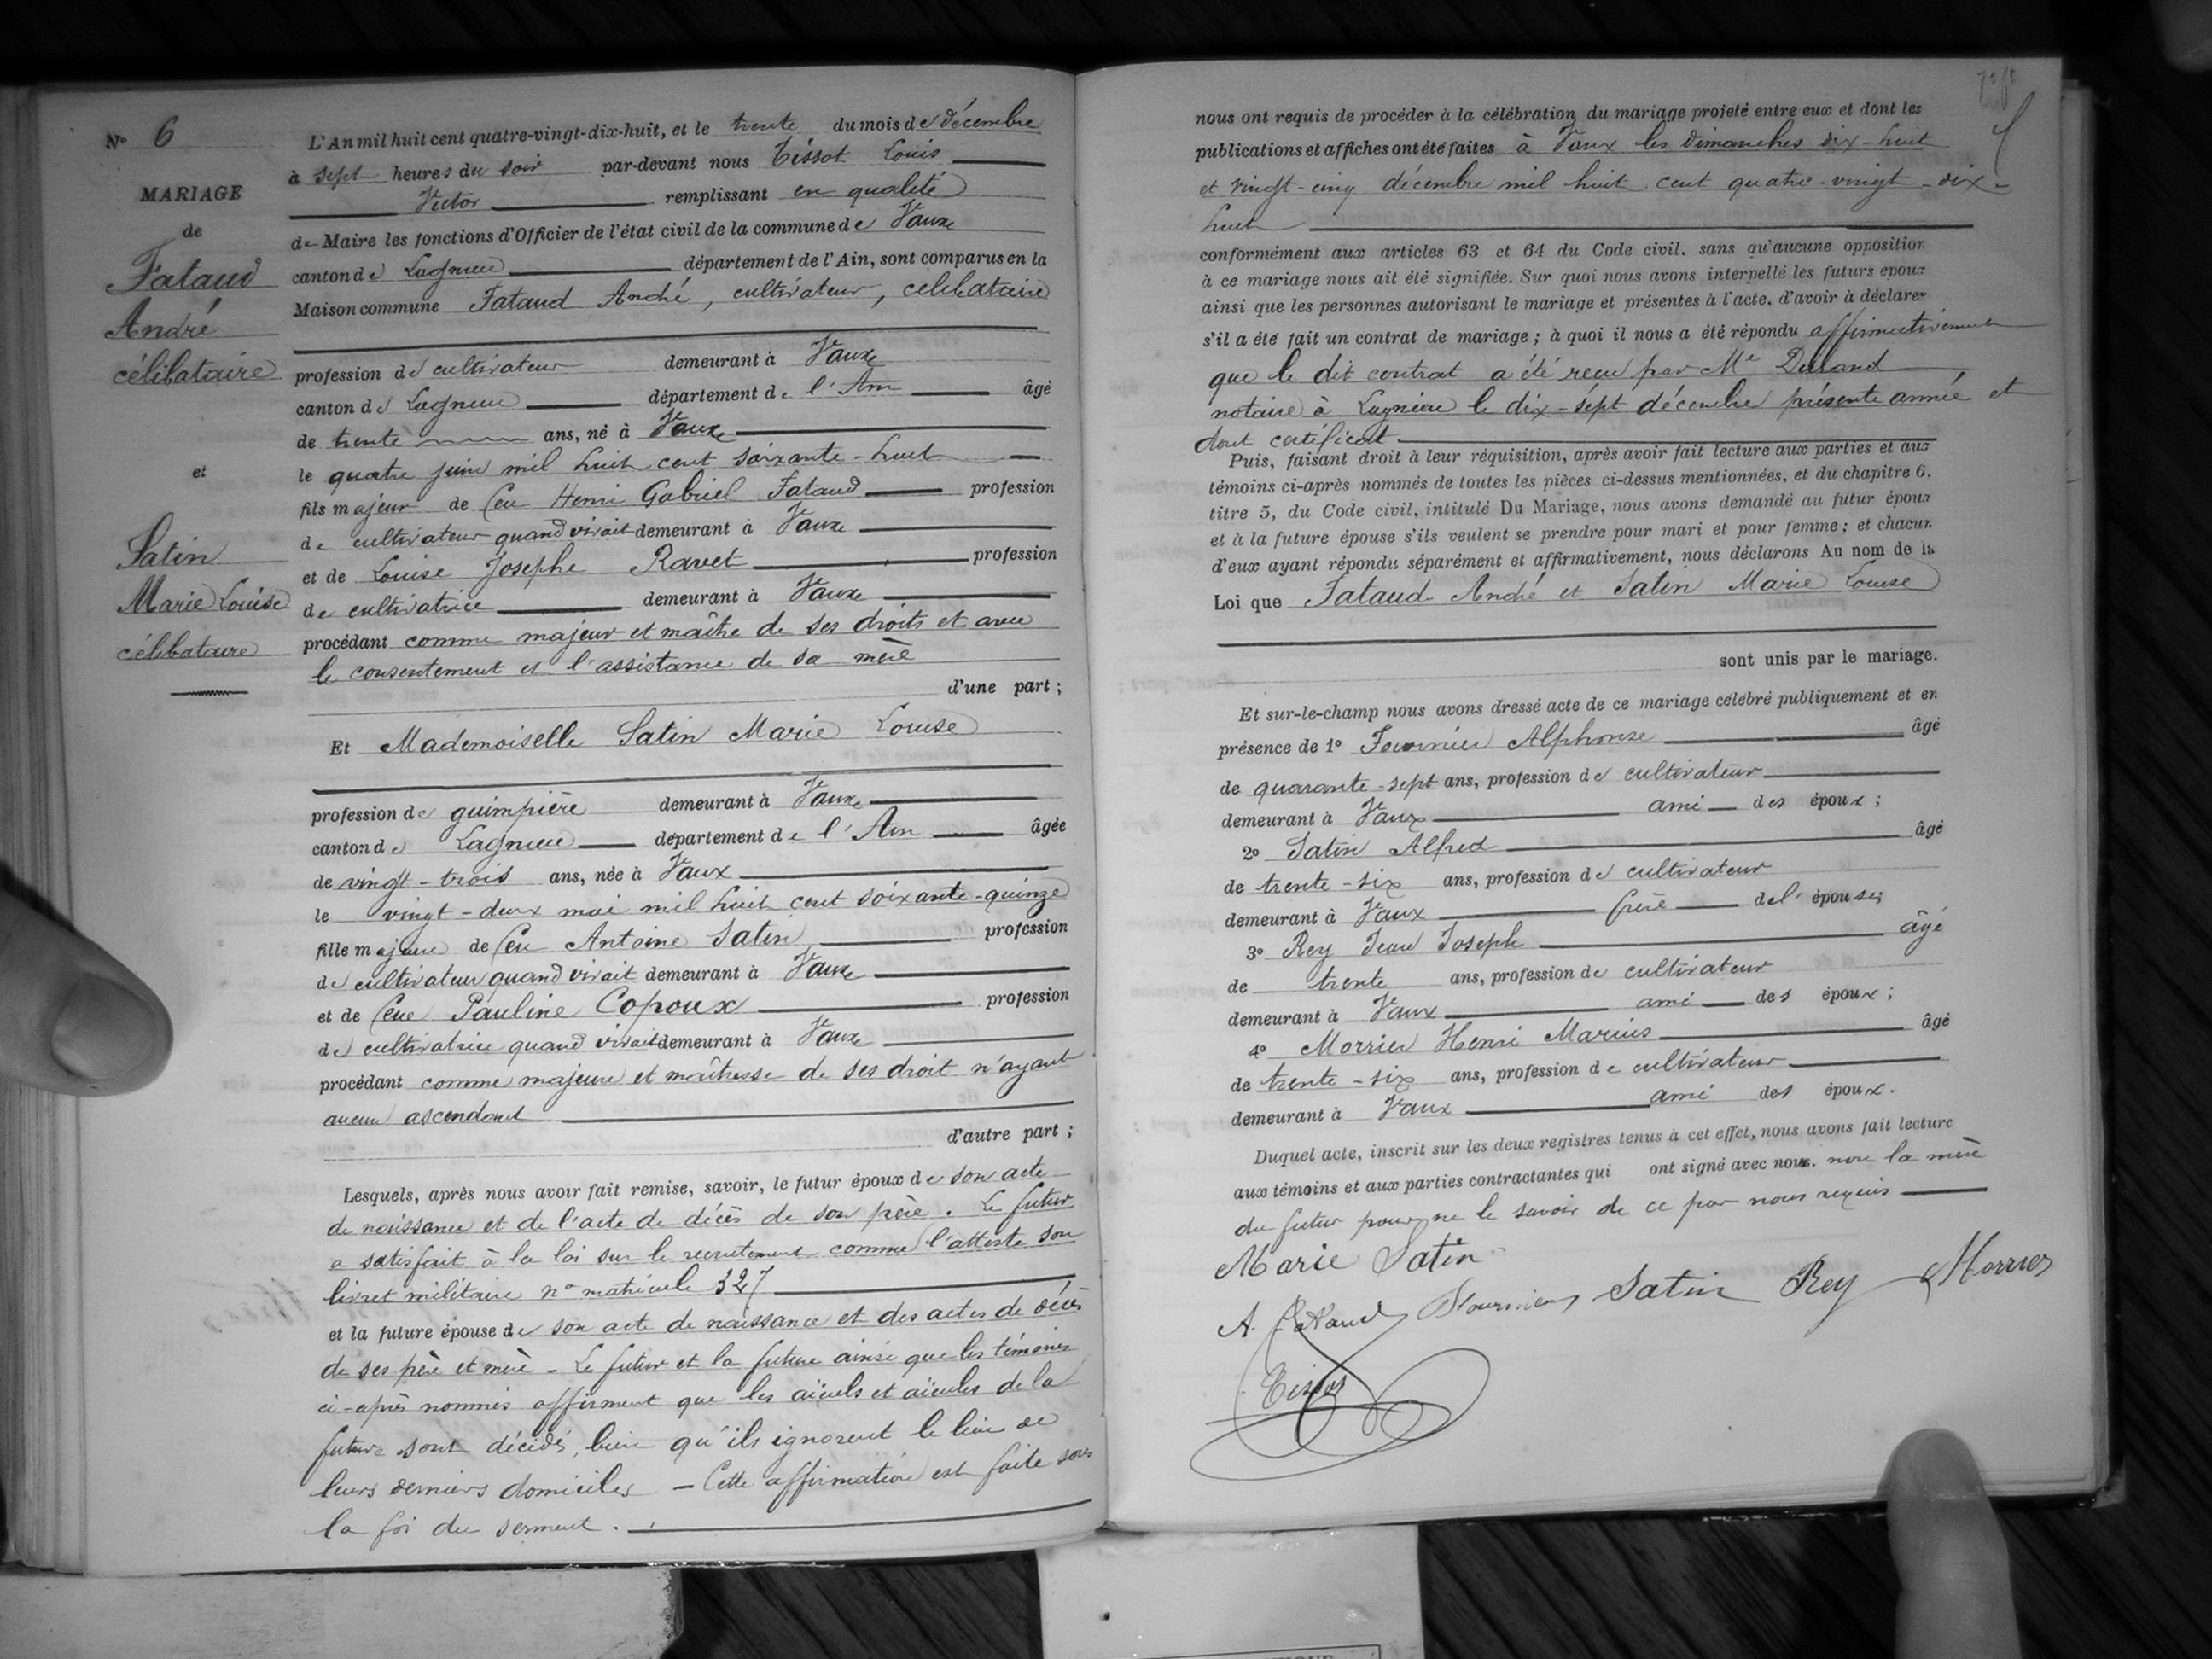 N° 6
MARIAGE
de
Fataud
André
célibataire
et
Satin
Marie Louise
célibataire
L'An mil huit cent quatre-vingt-dix-huit, et le trente du mois de décembre
à sept heures du soir par-devant nous Tissot Louis
Victor remplissant en qualité
de Maire les fonctions d'Officier de l'état civil de la commune de Vaux
canton de Lagnieu département de l'Ain, sont comparus en la
Maison commune Fataud André, cultivateur, célibataire
profession de cultivateur demeurant à Vaux
canton de Lagnieu département de l'Ain âgé
de trente ans, né à Vaux
le quatre juin mil huit cent soixante-huit
fils majeur de feu Henri Gabriel Fataud profession
de cultivateur quand vivait demeurant à Vaux
et de Louise Josephe Ravet profession
de cultivatrice demeurant à Vaux
procédant comme majeur et maître de ses droits et avec
le consentement et l'assistance de sa mère
d'une part ;
Et Mademoiselle Satin Marie Louise
profession de guimpière demeurant à Vaux
canton de Lagnieu département de l'Ain âgée
de vingt-trois ans, née à Vaux
le vingt-deux mai mil huit cent soixante-quinze
fille majeure de feu Antoine Satin profession
de cultivateur quand vivait demeurant à Vaux
et de feue Pauline Copoux profession
de cultivatrice quand vivait demeurant à Vaux
procédant comme majeure et maîtresse de ses droit n'ayant
aucun ascendant
d'autre part ;
Lesquels, après nous avoir fait remise, savoir, le futur époux de son acte
de naissance et de l'acte de décès de son père. Le futur
a satisfait à la loi sur le recrutement comme l'atteste son
livret militaire n° matricule 327
et la future épouse de son acte de naissance et des actes de décès
de ses père et mère - Le futur et la future ainsi que les témoins
ci-après nommés affirment que les aïeuls et aïeules de la
future sont décédés, bien qu'ils ignorent le lieu de
leurs derniers domiciles - Cette affirmation est faite sous
la foi du serment.
nous ont requis de procéder à la célébration du mariage projeté entre eux et dont les
publications et affiches ont été faites à Vaux les dimanches dix-huit
et vingt-cinq décembre mil huit cent quatre-vingt-dix-
huit
conformément aux articles 63 et 64 du Code civil, sans qu'aucune opposition
à ce mariage nous ait été signifiée. Sur quoi nous avons interpellé les futurs époux
ainsi que les personnes autorisant le mariage et présentes à l'acte, d'avoir à déclarer
s'il a été fait un contrat de mariage ; à quoi il nous a été répondu affirmativement
que le dit contrat a été reçu par Me Durand
notaire à Lagnieu le dix-sept décembre présente année et
dont certificat
Puis, faisant droit à leur réquisition, après avoir fait lecture aux parties et aux
témoins ci-après nommés de toutes les pièces ci-dessus mentionnées, et du chapitre 6,
titre 5, du Code civil, intitulé Du Mariage, nous avons demandé au futur époux
et à la future épouse s'ils veulent se prendre pour mari et pour femme ; et chacun
d'eux ayant répondu séparément et affirmativement, nous déclarons Au nom de la
Loi que Fataud André et Satin Marie Louise
sont unis par le mariage.
Et sur-le-champ nous avons dressé acte de ce mariage célébré publiquement et en
présence de 1° Fournier Alphonse âgé
de quarante-sept ans, profession de cultivateur
demeurant à Vaux ami des époux ;
2° Satin Alfred âgé
de trente-six ans, profession de cultivateur
demeurant à Vaux frère de l'épouse ;
3° Rey Jean Joseph âgé
de trente ans, profession de cultivateur
demeurant à Vaux ami des époux ;
4° Morrier Henri Marius âgé
de trente-six ans, profession de cultivateur
demeurant à Vaux ami des époux.
Duquel acte, inscrit sur les deux registres tenus à cet effet, nous avons fait lecture
aux témoins et aux parties contractantes qui ont signé avec nous. non la mère
du futur pour ne le savoir de ce par nous requis
Marie Satin
A. Fataud Fournier Satin Rey Morrier
Tissot